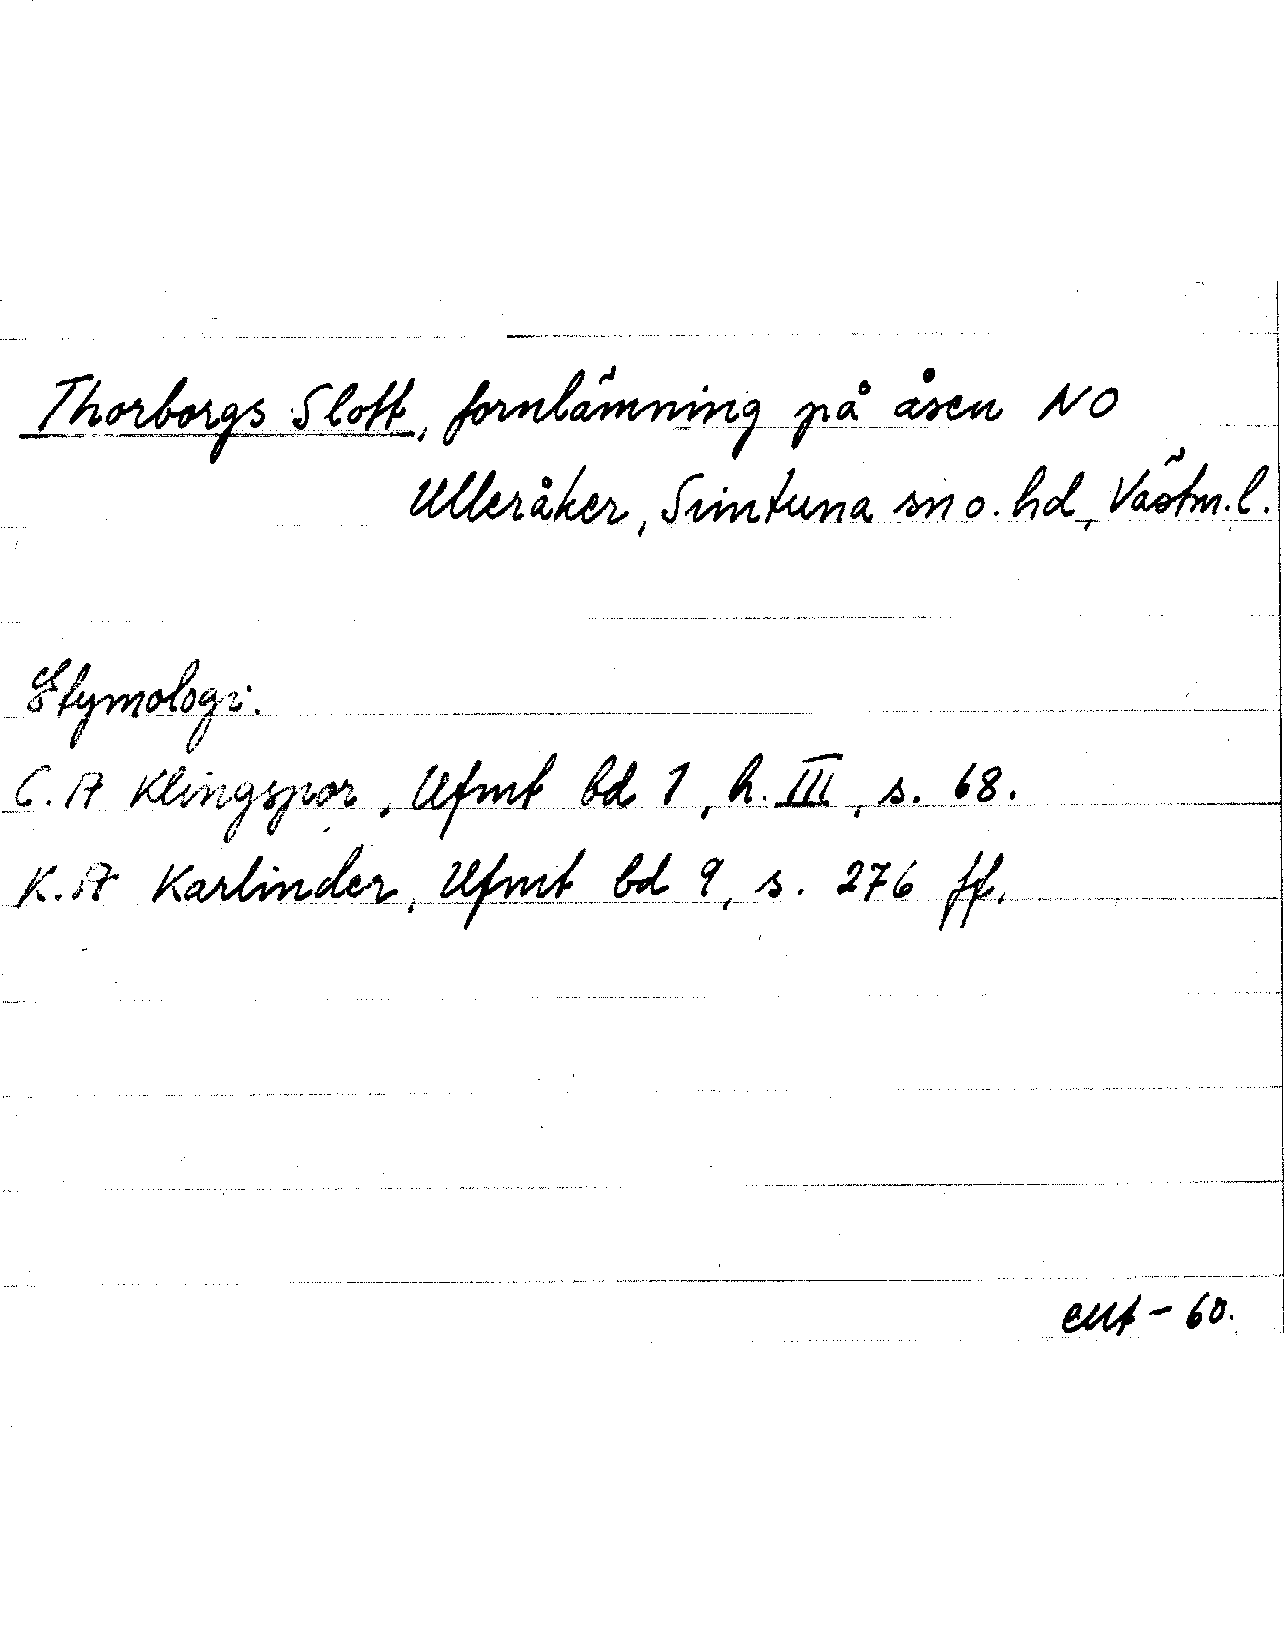 Thorborgs Slott, fornlämning på åsen NO
Ulleråker, Simtuna sn o. hd, Västm. l.
Etymologi.
C. A Klingspor, Ufmt bd 1, h. III, s. 68.
K. A Karlinder, Ufmt bd 9, s. 276 ff.
- 60.